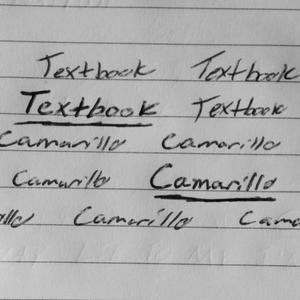 Textbook Textbook
Textbook Textbook
Camarillo Camarillo
Camarillo Camarillo
Camarillo